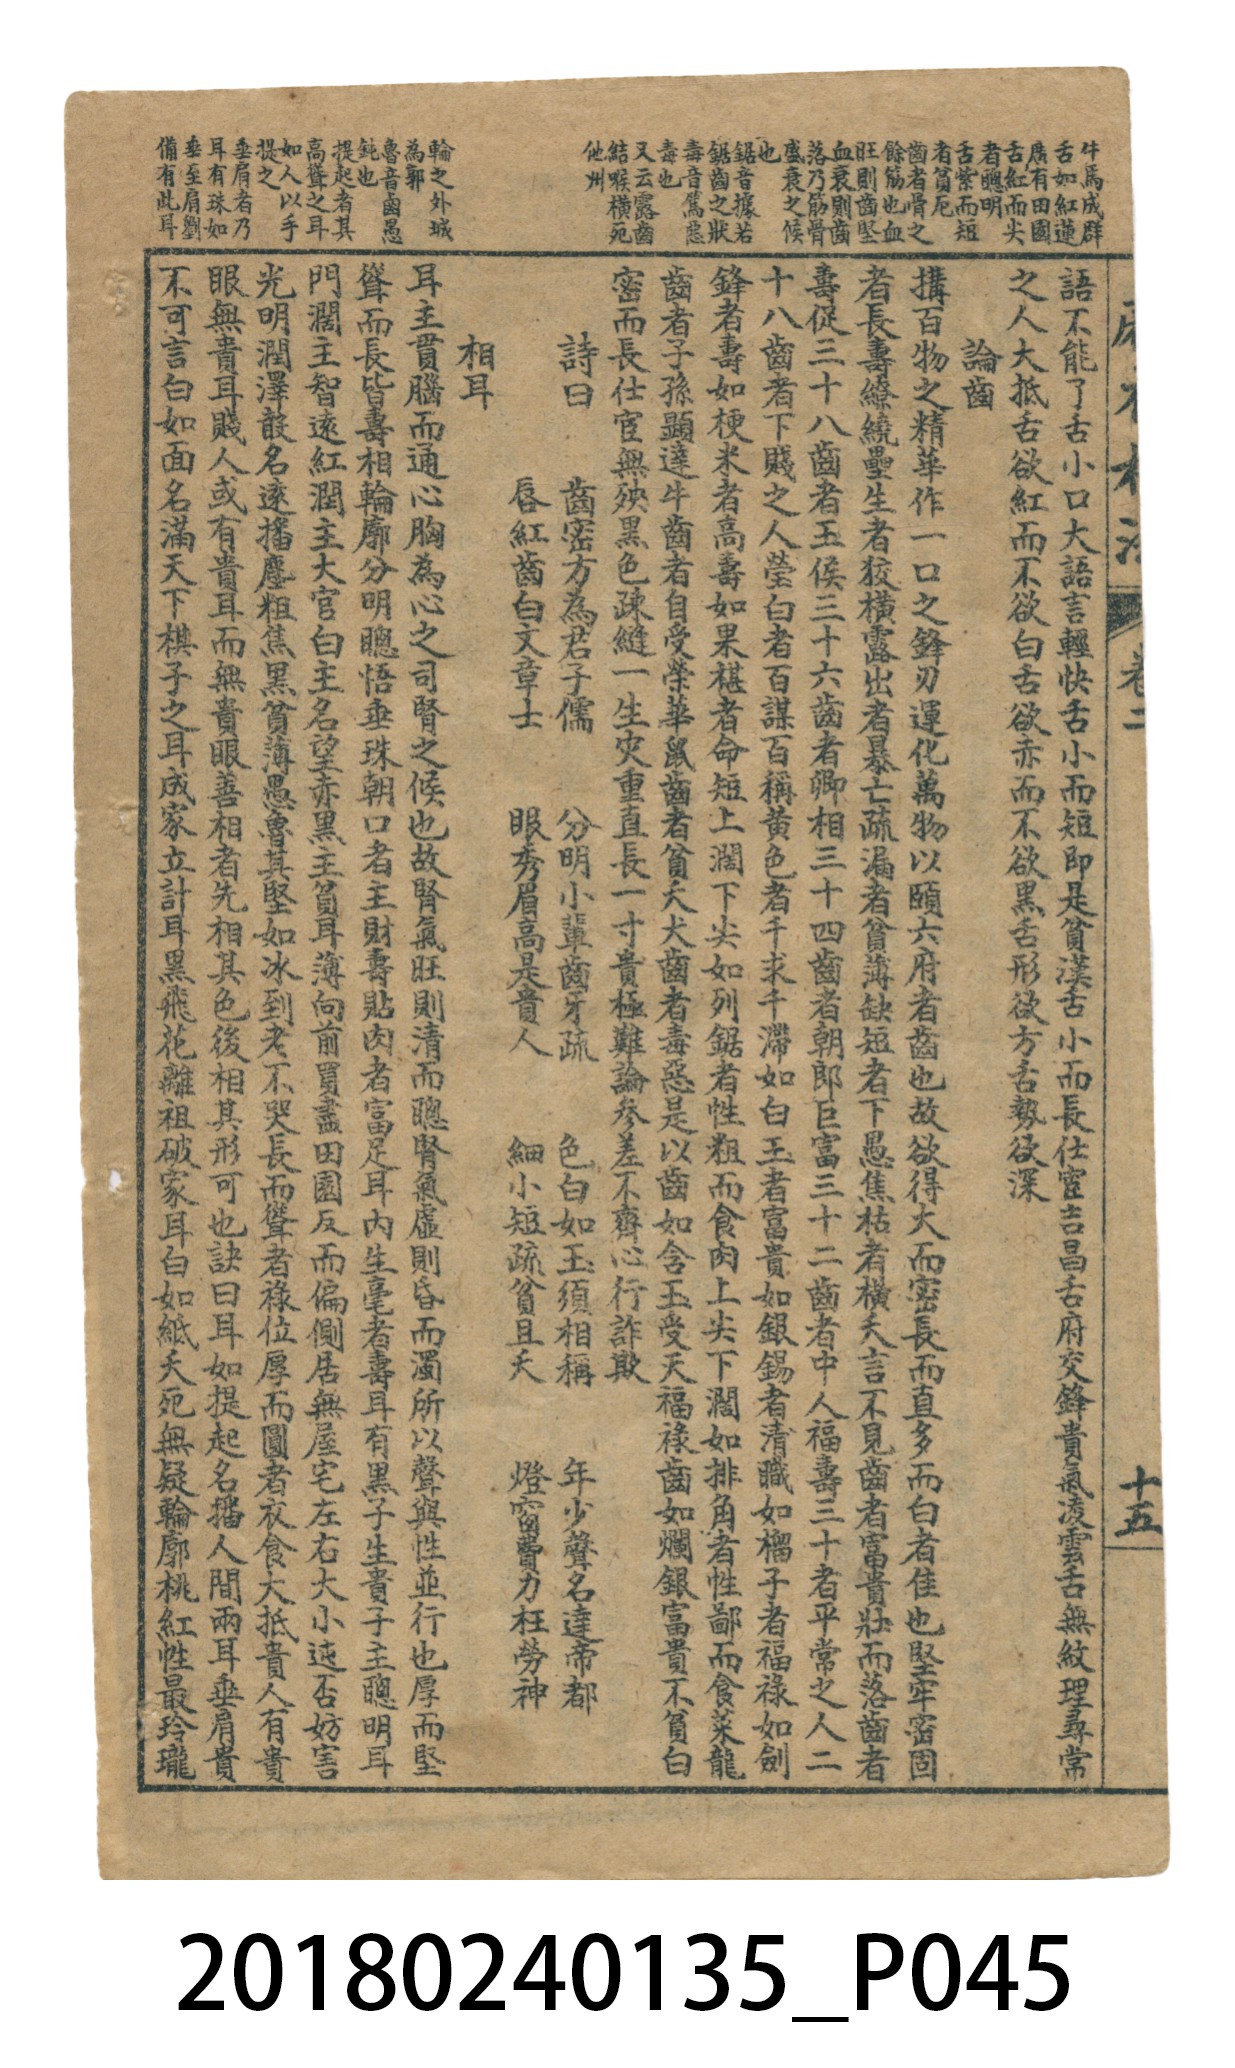 牛馬成群
舌如紅蓮
廣有田園
舌紅而尖
者聰明
舌紫而短
者貧厄
齒者骨之
餘筋也血
旺則齒堅
血衰則齒
落乃筋骨
盛衰之候
也
鋸音據若
鋸齒之狀
毒音篤惡
毒也
又云露齒
結喉橫死
他州
輪之外城
為郭
魯音卤愚
鈍也
提起者其
高聳之耳
如人以手
提之
垂肩者乃
耳有珠如
垂至肩劉
備有此耳
卷二
十五
語不能了舌小口大語言輕快舌小而短即是貧漢舌小而長仕宦吉昌舌府交鋒貴氣凌雲舌無紋理尋常
之人大抵舌欲紅而不欲白舌欲赤而不欲黑舌形欲方舌勢欲深
論齒
搆百物之精華作一口之鋒刃運化萬物以頤六府者齒也故欲得大而密長而直多而白者佳也堅牢密固
者長壽繚繞壘生者狡橫露出者暴亡疏漏者貧薄缺短者下愚焦枯者橫夭言不見齒者富貴壯而落齒者
壽促三十八齒者王侯三十六齒者卿相三十四齒者朝郎巨富三十二齒者中人福壽三十者平常之人二
十八齒者下賤之人瑩白者百謀百稱黃色者千求千滯如白玉者富貴如銀錫者清職如榴子者福祿如劍
鋒者壽如梗米者高壽如果椹者命短上濶下尖如列鋸者性粗而食肉上尖下濶如排角者性鄙而食菜龍
齒者子孫顯達牛齒者自受榮華鼠齒者貧夭犬齒者毒惡是以齒如含玉受天福祿齒如爛銀富貴不貧白
密而長仕宦無殃黑色疎縫一生灾重直長一寸貴極難論參差不齊心行詐欺
詩曰　齒密方為君子儒　分明小輩齒牙疏　色白如玉須相稱　年少聲名達帝都
唇紅齒白文章士　眼秀眉高是貴人　細小短疏貧且夭　燈窗費力枉勞神
相耳
耳主貫腦而通心胸為心之司腎之候也故腎氣旺則清而聰腎氣虛則昏而濁所以聲與性並行也厚而堅
聳而長皆壽相輪廓分明聰悟垂珠朝口者主財壽貼肉者富足耳內生毫者壽耳有黑子生貴子主聰明耳
門濶主智遠紅潤主大官白主名望赤黑主貧耳薄向前買盡田園反而偏側居無屋宅左右大小迍否妨害
光明潤澤聲名遠播塵粗焦黑貧薄愚魯其堅如冰到老不哭長而聳者祿位厚而圓者衣食大抵貴人有貴
眼無貴耳賤人或有貴耳而無貴眼善相者先相其色後相其形可也訣曰耳如提起名播人間兩耳垂肩貴
不可言白如面名滿天下棋子之耳成家立計耳黑飛花離祖破家耳白如紙夭死無疑輪廓桃紅性最玲瓏
20180240135_P045